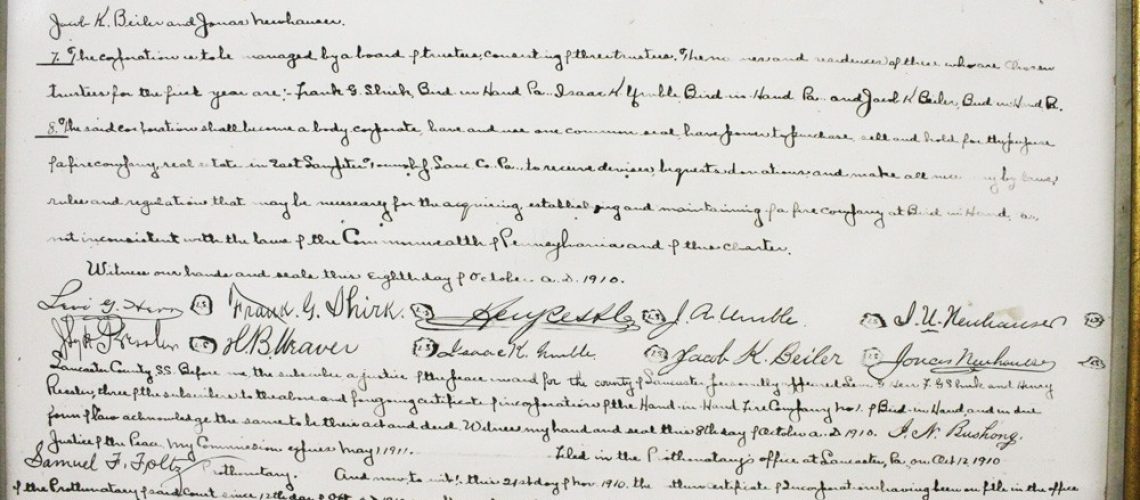 Jacob K. Beiler and Jonas Neuhauser.
7. The corporation is to be managed by a board of trustees, consisting of three trustees. The and residences of those who are chosen
trustees for the first year are:- Frank G. Shirk, Bird-in-Hand Pa. Isaac K. Umble, Bird-in-Hand Pa. and Jacob K Beiler, Bird-in-Hand Pa.
8. The said corporation shall become a body corporate, have and use one common seal, have power to purchase, sell and hold for the purpose
of a fire company, real estate in East Lampeter Township Lanc. Co. Pa. to receive devises, bequests, donations, and make all by laws,
rules and regulations that may be necessary for the acquiring, establishing and maintaining of a fire company at Bird-in-Hand, as
not inconsistent with the laws of the Commonwealth of Pennsylvania and of this charter.
Witness our hands and seals this Eighth day of October A.D. 1910.
Levi G. Herr L.S. Frank. G. Shirk. L.S. L.S. J. A. Umble. L.S. J. U. Neuhauser L.S.
Ressler L.S. H. B. Weaver L.S. Isaac K. Umble. L.S. Jacob K. Beiler L.S. Jonas Neuhauser L.S.
Lancaster County S.S. Before me, the subscriber a justice of the peace in and for the county of Lancaster personally appeared Levi G Herr F. G Shirk and Henry
Ressler, three of the subscribers to the above and foregoing certificate of incorporation of the Hand-in-Hand Fire Company No 1. of Bird-in-Hand, and in due
form of law acknowledge the same to be their act and deed. Witness my hand and seal this 8th day of October A.D. 1910. I. N. Bushong.
Justice of the Peace. My Commission expires May 1, 1911. Filed in the Prothonotary's office at Lancaster, Pa., on Oct 12 1910
Samuel F. Foltz Prothonotary. And now, to wit: this 21st day of Nov. 1910. the certificate of Incorporation having been on file in the office
of the Prothonotary of said Court since 12th day of Oct